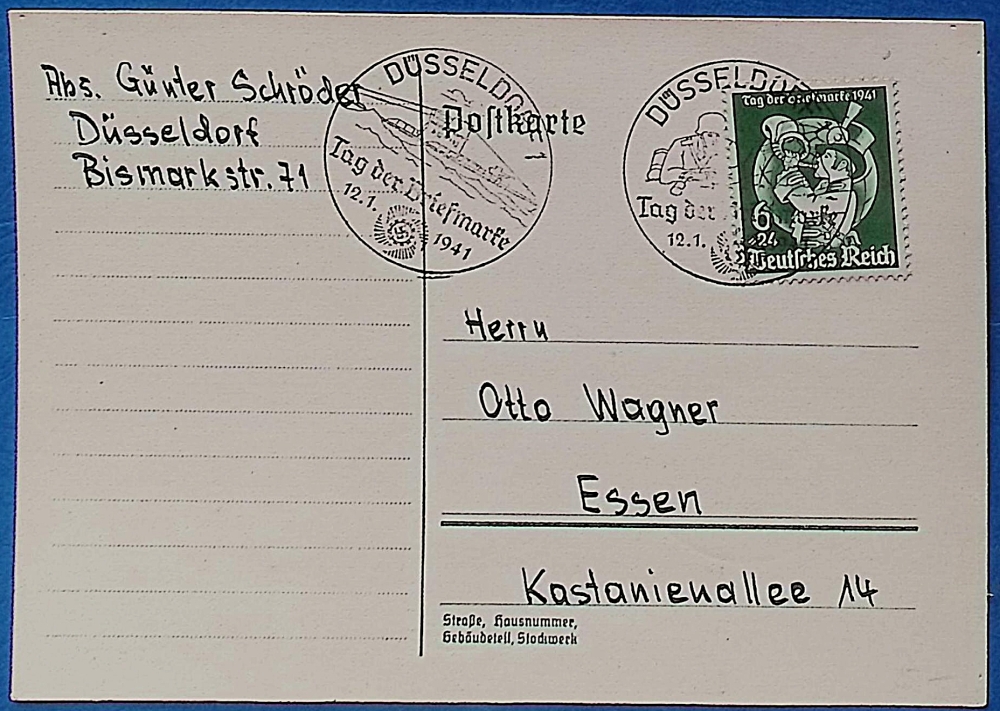 Abs. Günter Schröder
Düsseldorf
Bismarkstr. 71
DÜSSELDORF
Tag der Briefmarke
12.1. 1941
Postkarte
DÜSSELDORF
Tag der
12.1.
Tag der Briefmarke 1941
6
+24
Deutsches Reich
Herrn
Otto Wagner
Essen
Kastanienallee 14
Straße, Hausnummer,
Gebäudeteil, Stockwerk